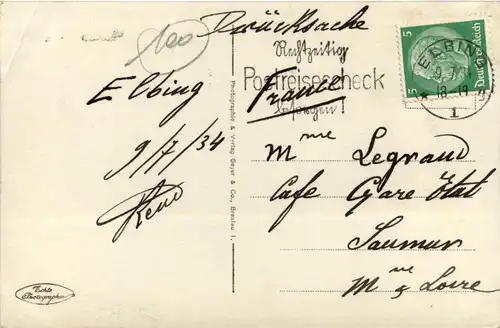 100
Elbing
9/7/34
René
Echte
Photographie
Photographie & Verlag Geyer & Co., Breslau 1.
Drücksache
Rechtzeitig
Postreisescheck
besorgen!
France
5
5
Deutsches Reich
ELBING
9.7.
18-19
1
Mme Legrand
Cafe Gare Etat
Saumur
Mne & Loire